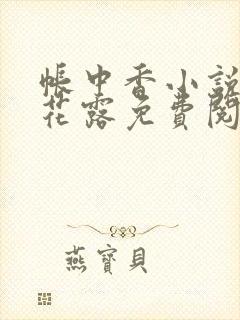 帳中香小說
花露免費閱
燕寶貝